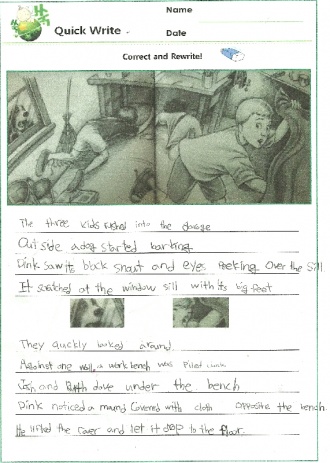 Name
Quick Write
Date
Correct and Rewrite!
The three kids rushed into the garage
Outside a dog started barking
Dink saw its black snout and eyes peeking Over the sill
It scratched at the window sill with its big feet
They quickly looked around
Against one wall, a work bench was Piled
Josh and Ruth dove under the bench
Dink noticed a mound Covered with cloth opposite the bench
He lifted the Cover and let it drop to the floor.